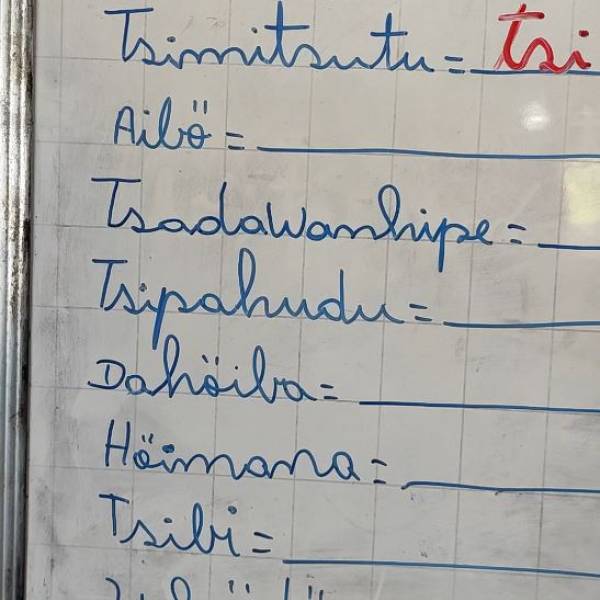 Tsimitsutu = tsi
Aibö =
Tsadawanhipe =
Tsipahudu =
Dahöiba =
Höimana =
Tsibi =